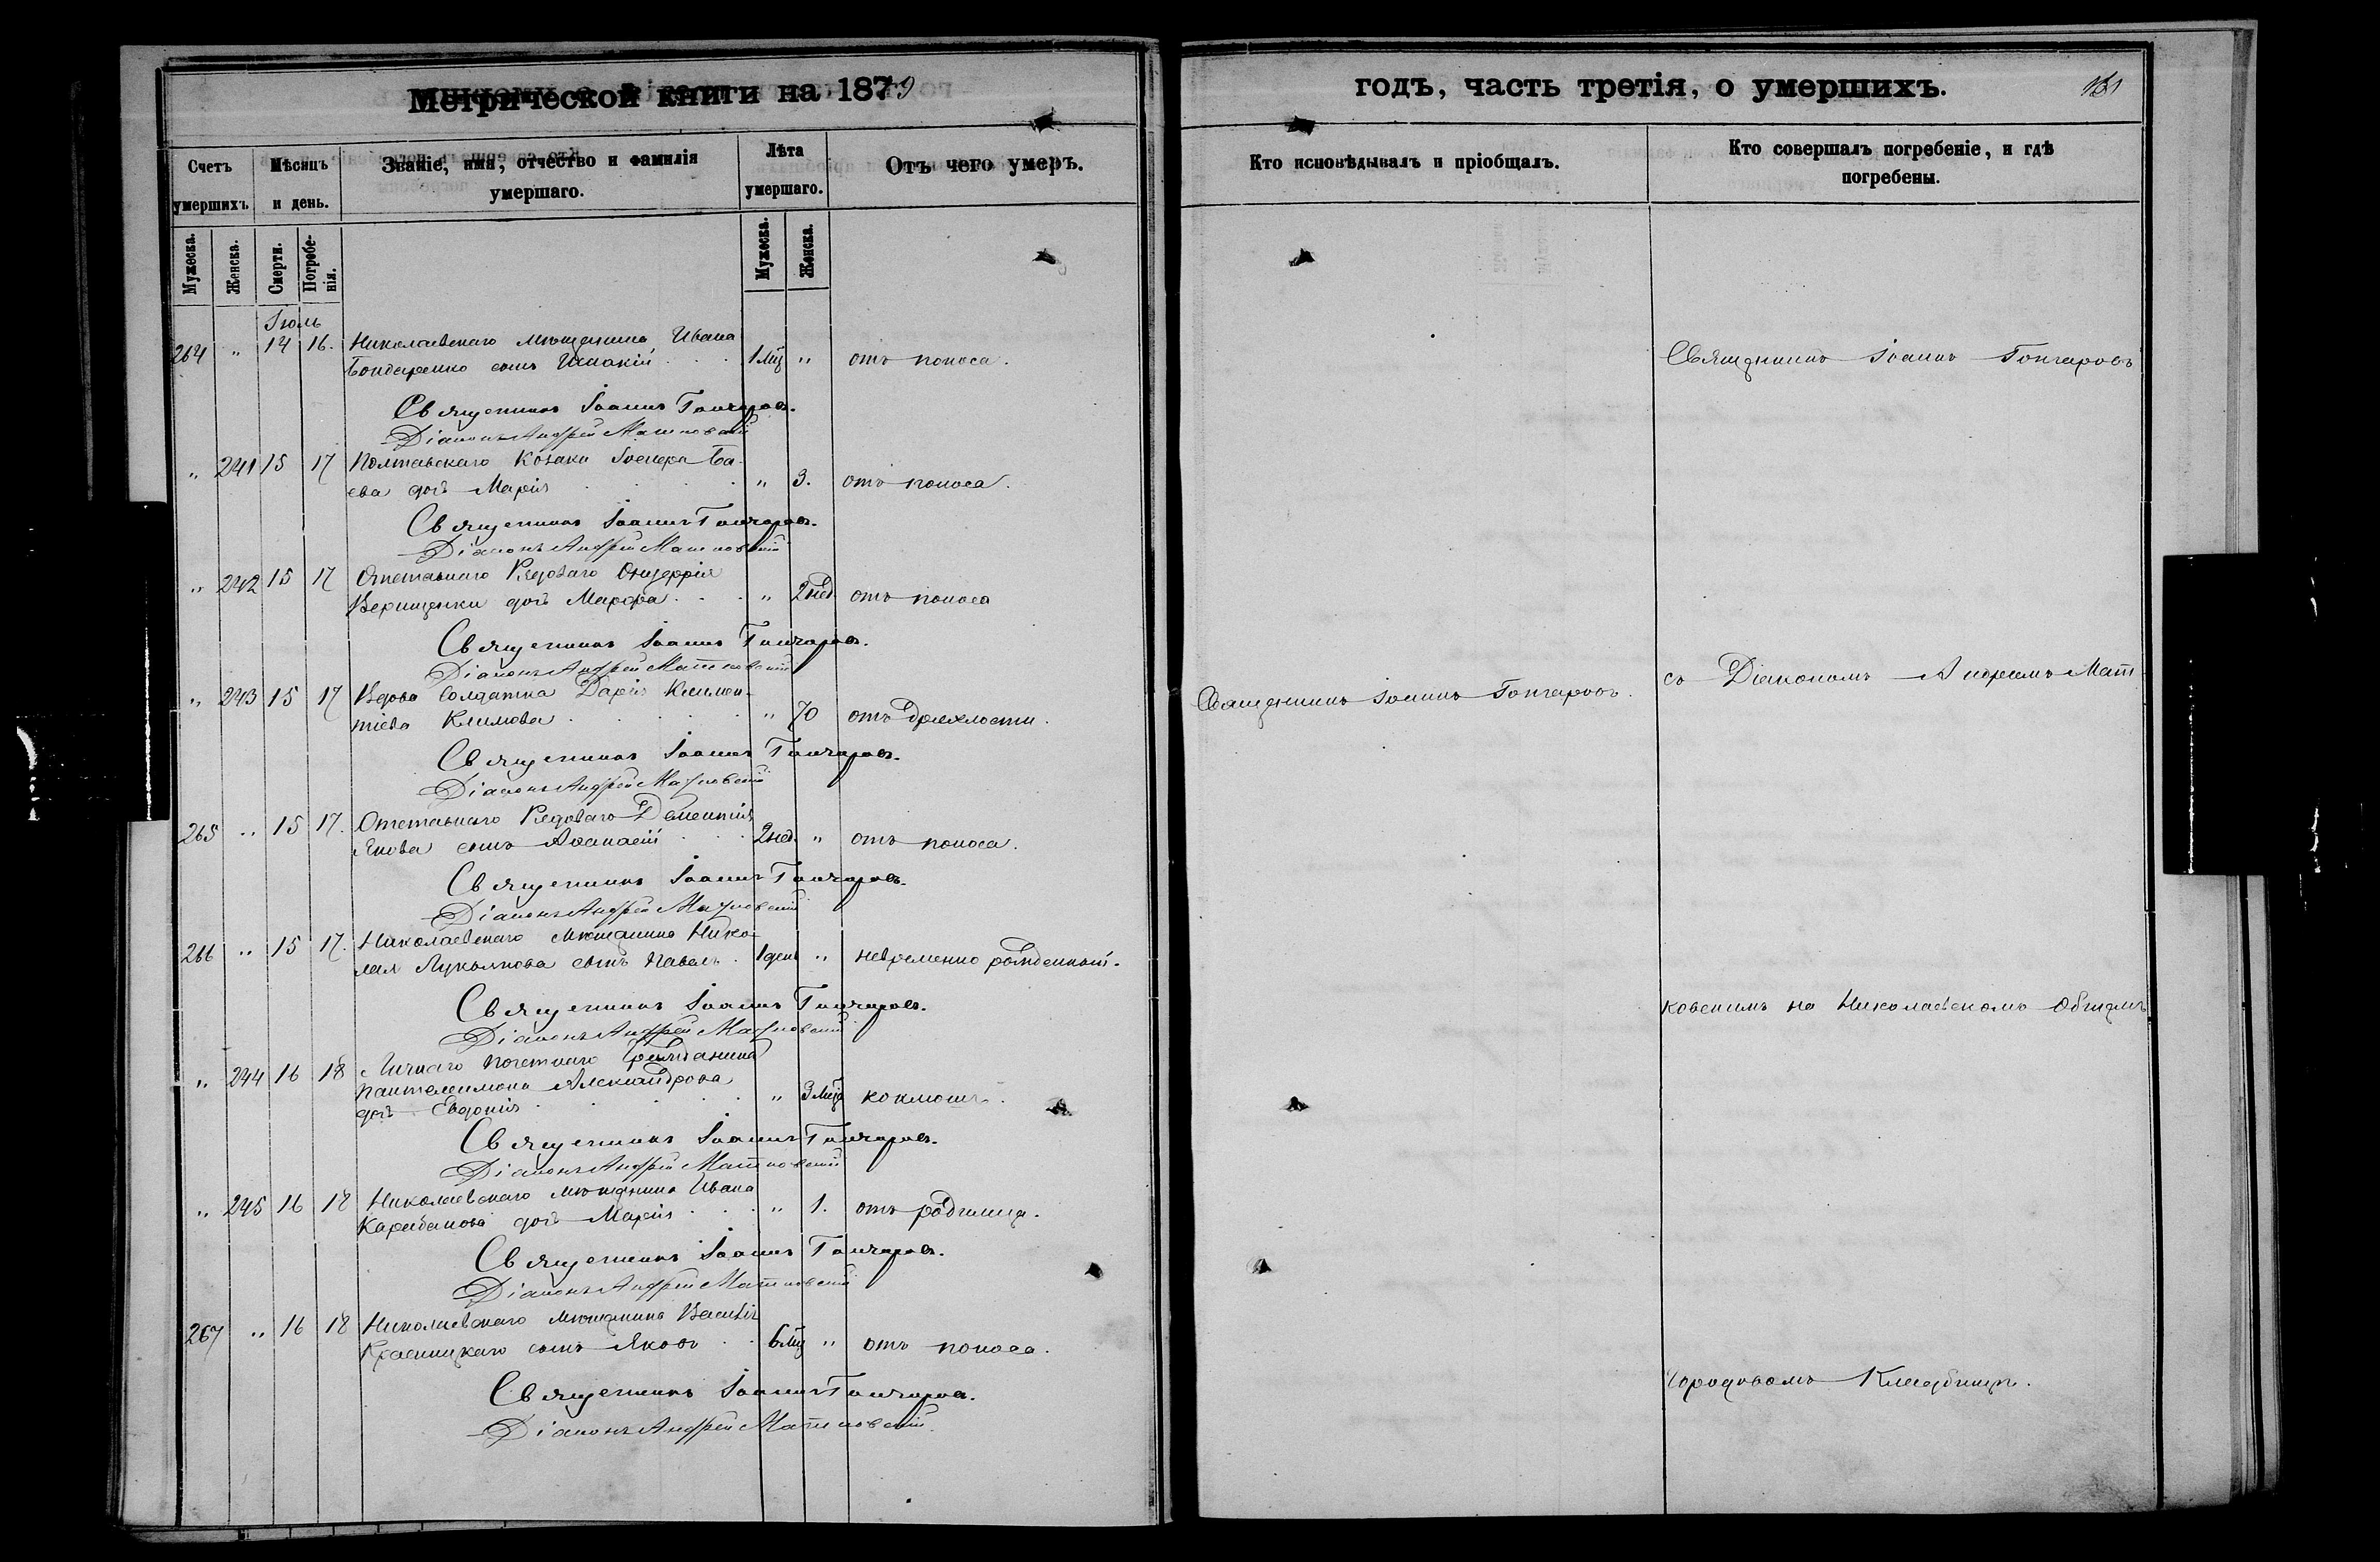 Метрической книги на 1879
Счетъ умершихъ.
Мѣсяцъ и день.
Званіе, имя, отчество и фамилія умершаго.
Лѣта умершаго.
Отъ чего умеръ.
Мужеска.
Женска.
Смерти.
Погребенія.
Мужеска.
Женска.
Іюль
264 " 14 16. Николаевскаго мѣщанина Ивана
Бондаренко сынъ 1 мц " отъ поноса.
Священникъ Іоаннъ Гончаровъ.
Діаконъ Андрей Матковскій
" 241 15 17 Полтавскаго Козака Ба-
ева дочь Марія " 3. отъ поноса.
Священникъ Іоаннъ Гончаровъ.
Діаконъ Андрей Матковскій
" 242 15 17 Отставнаго Рядоваго
дочь Марфа " 2 нед. отъ поноса
Священникъ Іоаннъ Гончаровъ.
Діаконъ Андрей Матковскій
" 243 15 17 Вдова Солдатка Дарія Климен-
тіева Климова " 70 отъ дряхлости.
Священникъ Іоаннъ Гончаровъ.
Діаконъ Андрей Матковскій
265 " 15 17. Отставнаго Рядоваго Дементія
Якова сынъ Аѳанасій 2 нед. " отъ поноса.
Священникъ Іоаннъ Гончаровъ.
Діаконъ Андрей Матковскій
266 " 15 17. Николаевскаго мѣщанина Нико-
лая Лукьянова сынъ Павелъ 1 день " невременно рожденный.
Священникъ Іоаннъ Гончаровъ.
Діаконъ Андрей Матковскій
" 244 16 18 Личнаго почетнаго Гражданина
Пантелеимона Александрова
дочь Евдокія " 3 мца коклюшъ.
Священникъ Іоаннъ Гончаровъ.
Діаконъ Андрей Матковскій
" 245 16 18 Николаевскаго мѣщанина Ивана
Карабанова дочь Марія " 1. отъ родимца.
Священникъ Іоаннъ Гончаровъ.
Діаконъ Андрей Матковскій
267 " 16 18 Николаевскаго мѣщанина Василія
Красницкаго сынъ Яковъ 6 мц " отъ поноса.
Священникъ Іоаннъ Гончаровъ.
Діаконъ Андрей Матковскій.
годъ, часть третія, о умершихъ.
Кто исповѣдывалъ и пріобщалъ.
Кто совершалъ погребеніе, и гдѣ погребены.
Священникъ Іоаннъ Гончаровъ
Священникъ Іоаннъ Гончаровъ.
съ Діакономъ Андреемъ Мат-
ковскимъ на Николаевскомъ Общемъ
Городовомъ Кладбищѣ.